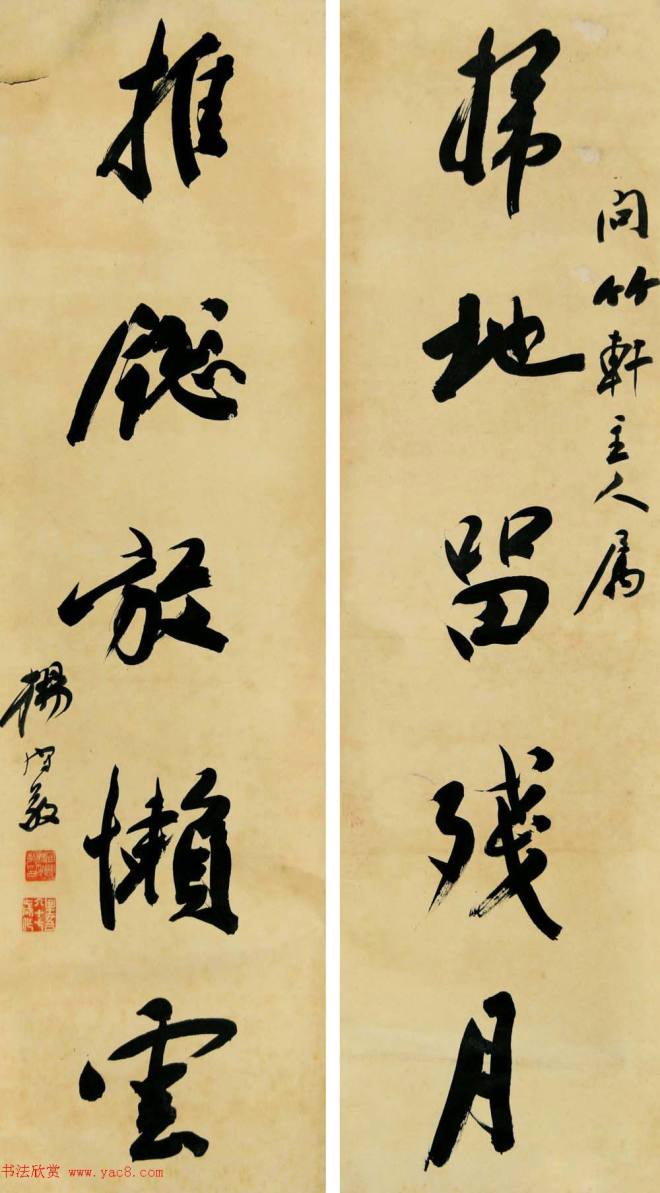 問竹軒主人屬
掃地留殘月
推牕放懶雲
楊守敬
书法欣赏 www.yac8.com